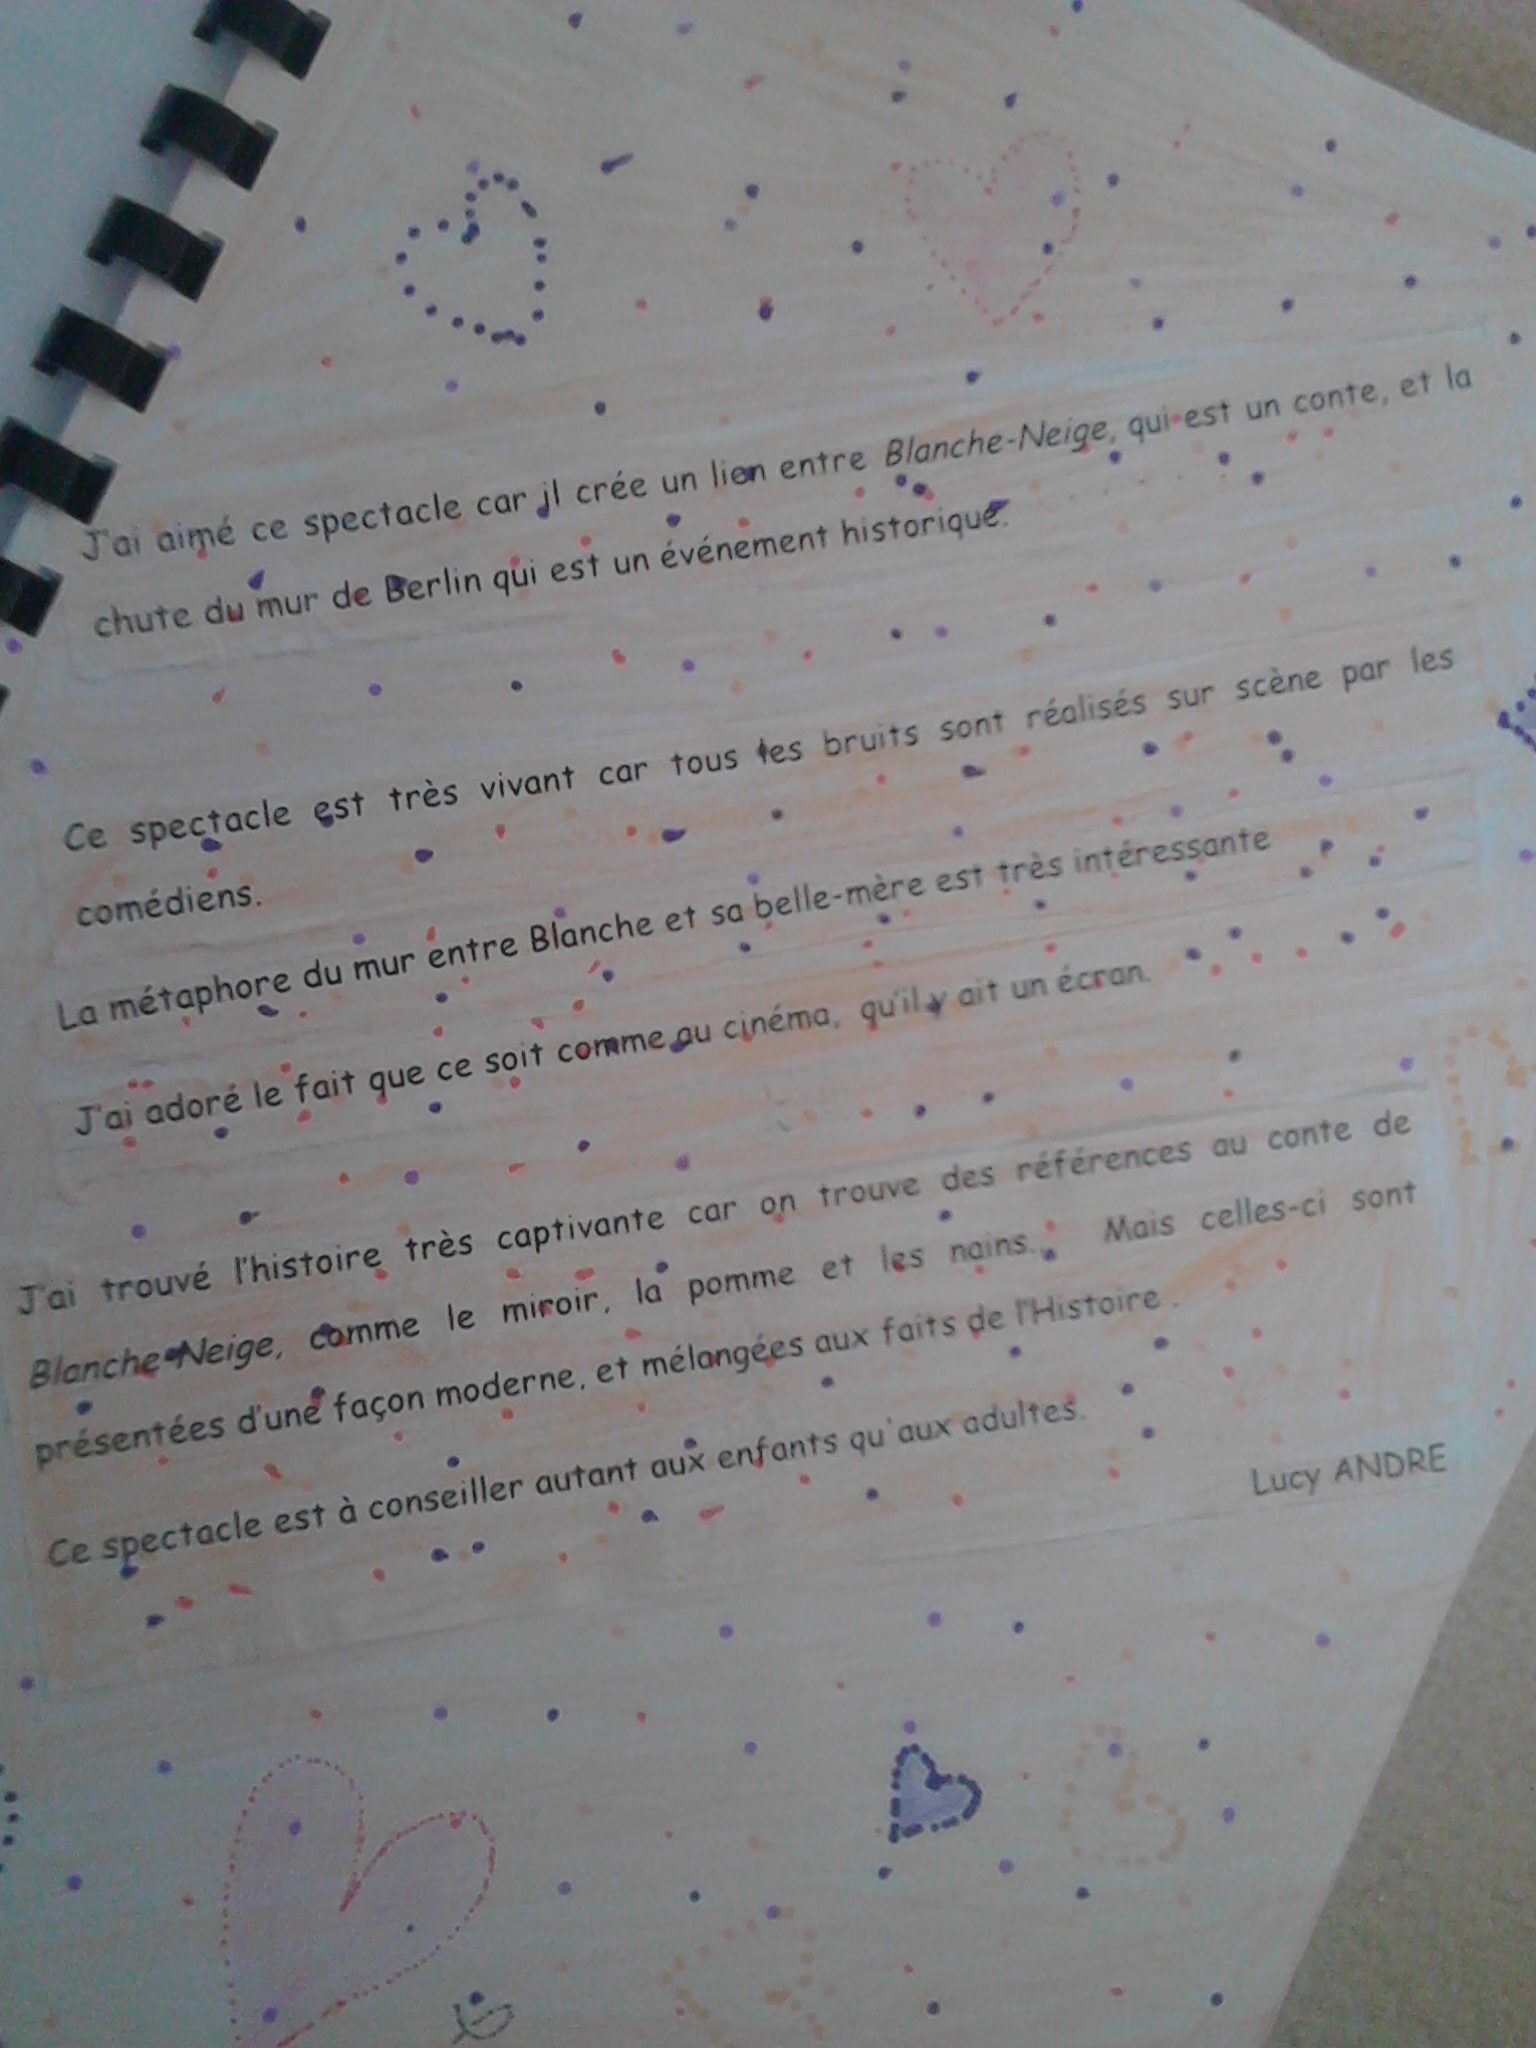 J'ai aimé ce spectacle car il crée un lien entre Blanche-Neige, qui est un conte, et la
chute du mur de Berlin qui est un événement historique.
Ce spectacle est très vivant car tous les bruits sont réalisés sur scène par les
comédiens.
La métaphore du mur entre Blanche et sa belle-mère est très intéressante
J'ai adoré le fait que ce soit comme au cinéma, qu'il y ait un écran.
J'ai trouvé l'histoire très captivante car on trouve des références au conte de
Blanche-Neige, comme le miroir, la pomme et les nains. Mais celles-ci sont
présentées d'une façon moderne, et mélangées aux faits de l'Histoire .
Ce spectacle est à conseiller autant aux enfants qu'aux adultes.
Lucy ANDRE